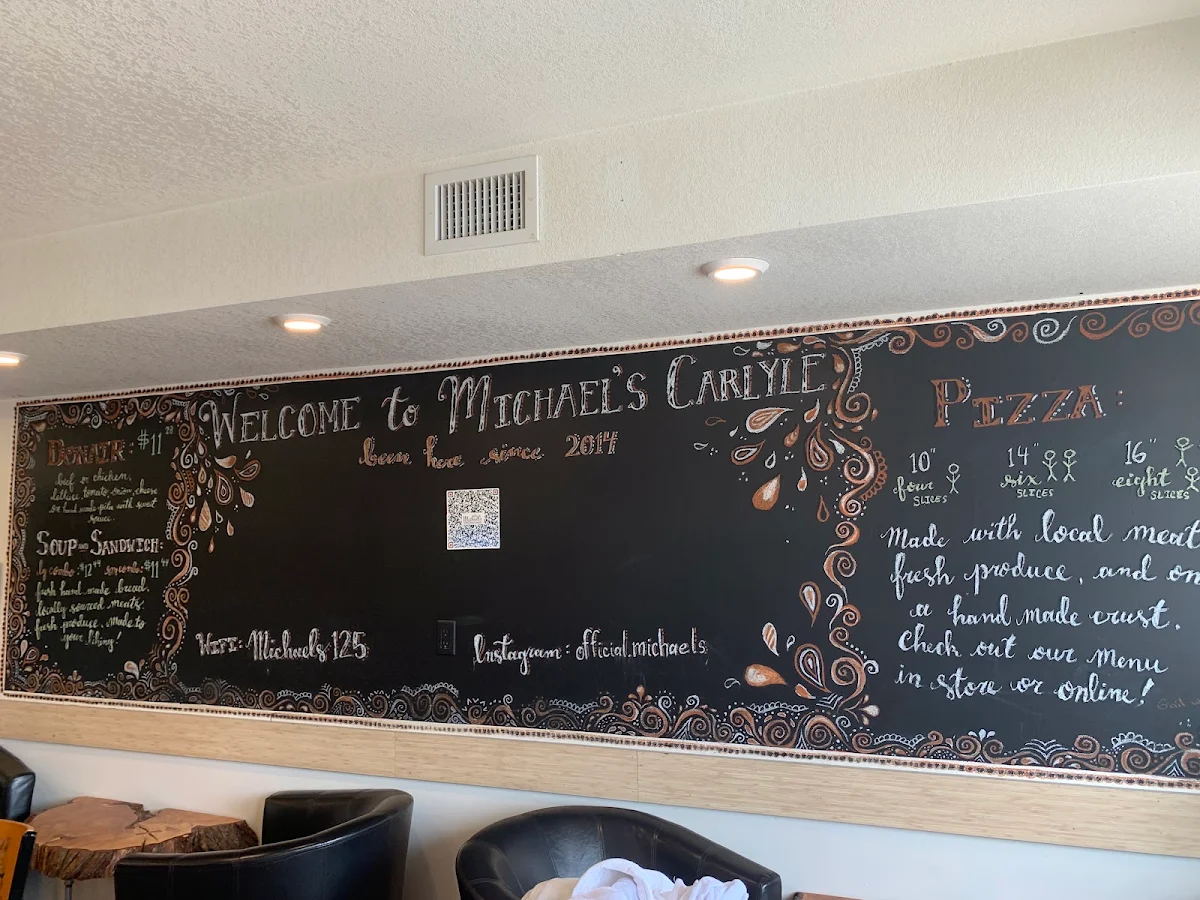 WELCOME to MICHAEL'S CARLYLE
been here since 2014
WIFI: Michaels125
Instagram: official.michaels
DONAIR: $11
beef or chicken,
lettuce, tomato, onion, cheese
on hand made pita with sweet
sauce.
SOUP AND SANDWICH:
fresh hand made bread,
locally sourced meats,
fresh produce, made to
your liking!
PIZZA:
10" 14" 16"
four six eight
SLICES SLICES SLICES
Made with local meat
fresh produce, and on
a hand made crust.
Check out our menu
in store or online!